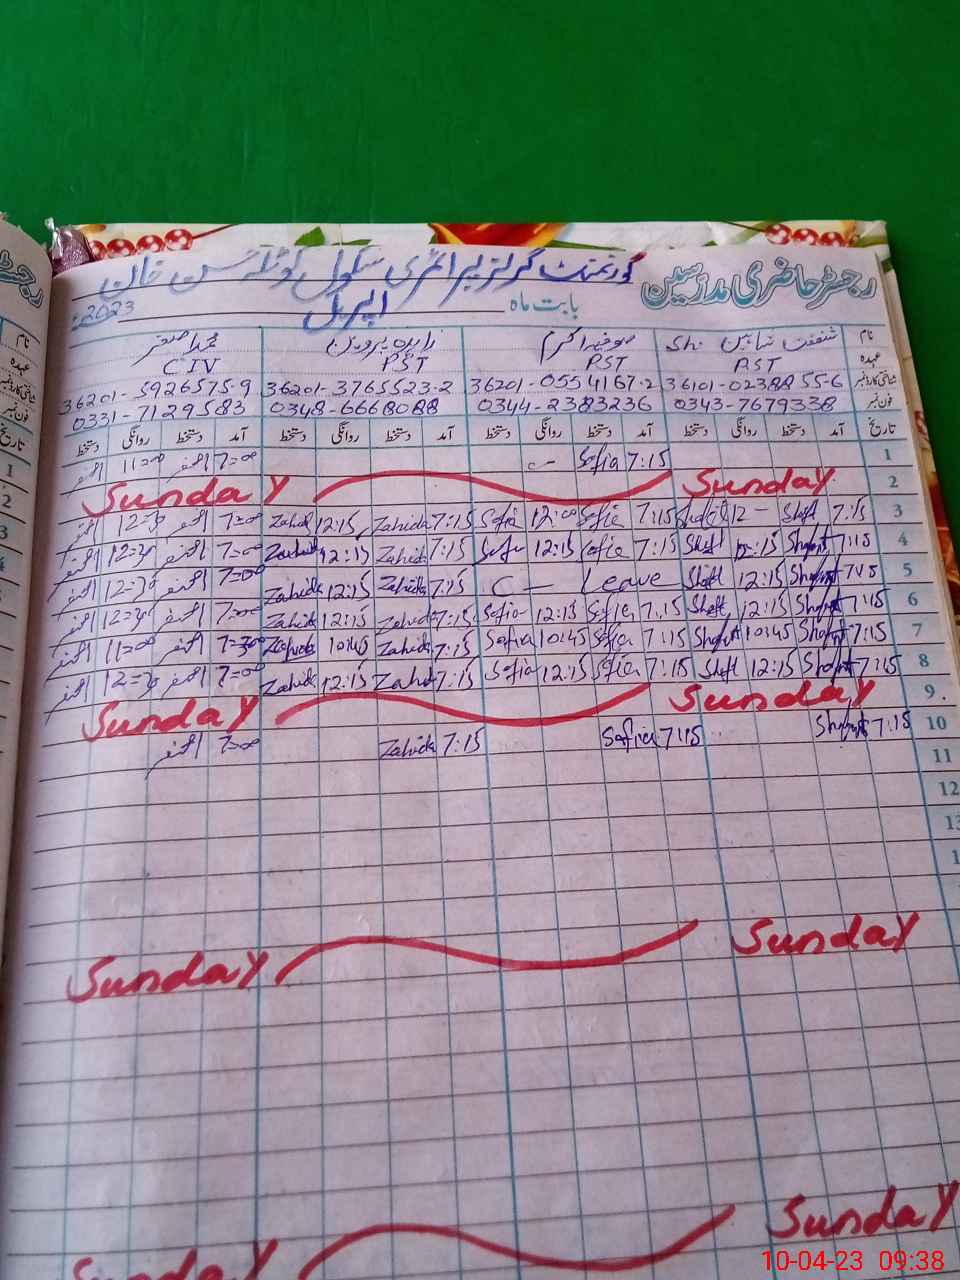 رجسٹر حاضری مدرسین گورنمنٹ گرلز پرائمری سکول کوٹلہ حسن خان
بابت ماہ اپریل 2023
نام شفقت شاہین Sh. صوفیہ اکرم زاہدہ پروین محمد اصغر
عہدہ PST PST PST CIV
شناختی کارڈ نمبر 36101-0238855-6 36201-0554167-2 36201-3765523-2 36201-5926575-9
فون نمبر 0343-7679338 0344-2383236 0348-6668088 0331-7129583
تاریخ آمد دستخط روانگی دستخط آمد دستخط روانگی دستخط آمد دستخط روانگی دستخط آمد دستخط روانگی دستخط
1 7:15 Sofia 7=00 اصغر 11=00 اصغر
2 Sunday Sunday
3 7:15 Sheft 12 7:15 Sofia 12:00 Sofia 7:15 Zahida 12:15 Zahid 7=00 اصغر اصغر
4 7:15 Shaft 12:15 Sheft 7:15 Sofia 12:15 Sofia 7:15 Zahida 12:15 Zahida 7=00 اصغر اصغر
5 Shaft 12:15 Sheft Leave C 7:15 Zahida 12:15 Zahida 7=00 اصغر اصغر
6 7:15 Shaft 12:15 Sheft 7:15 Sofia 12:15 Sofia 7:15 Zahida 12:15 Zahida 7=00 اصغر اصغر
7 7:15 Shaft 10:45 Shaft 7:15 Sofia 10:45 Sofia 7:15 Zahida 10:45 Zahida اصغر 11=00 اصغر
8 7:15 Shaft 12:15 Sheft 7:15 Sofia 12:15 Sofia 7:15 Zahida 12:15 Zahida 7=00 اصغر اصغر
9 Sunday Sunday
10 7:15 Shaft 7:15 Sofia 7:15 Zahida 7=00 اصغر
11
12
13
Sunday Sunday
Sunday Sunday
10-04-23 09:38